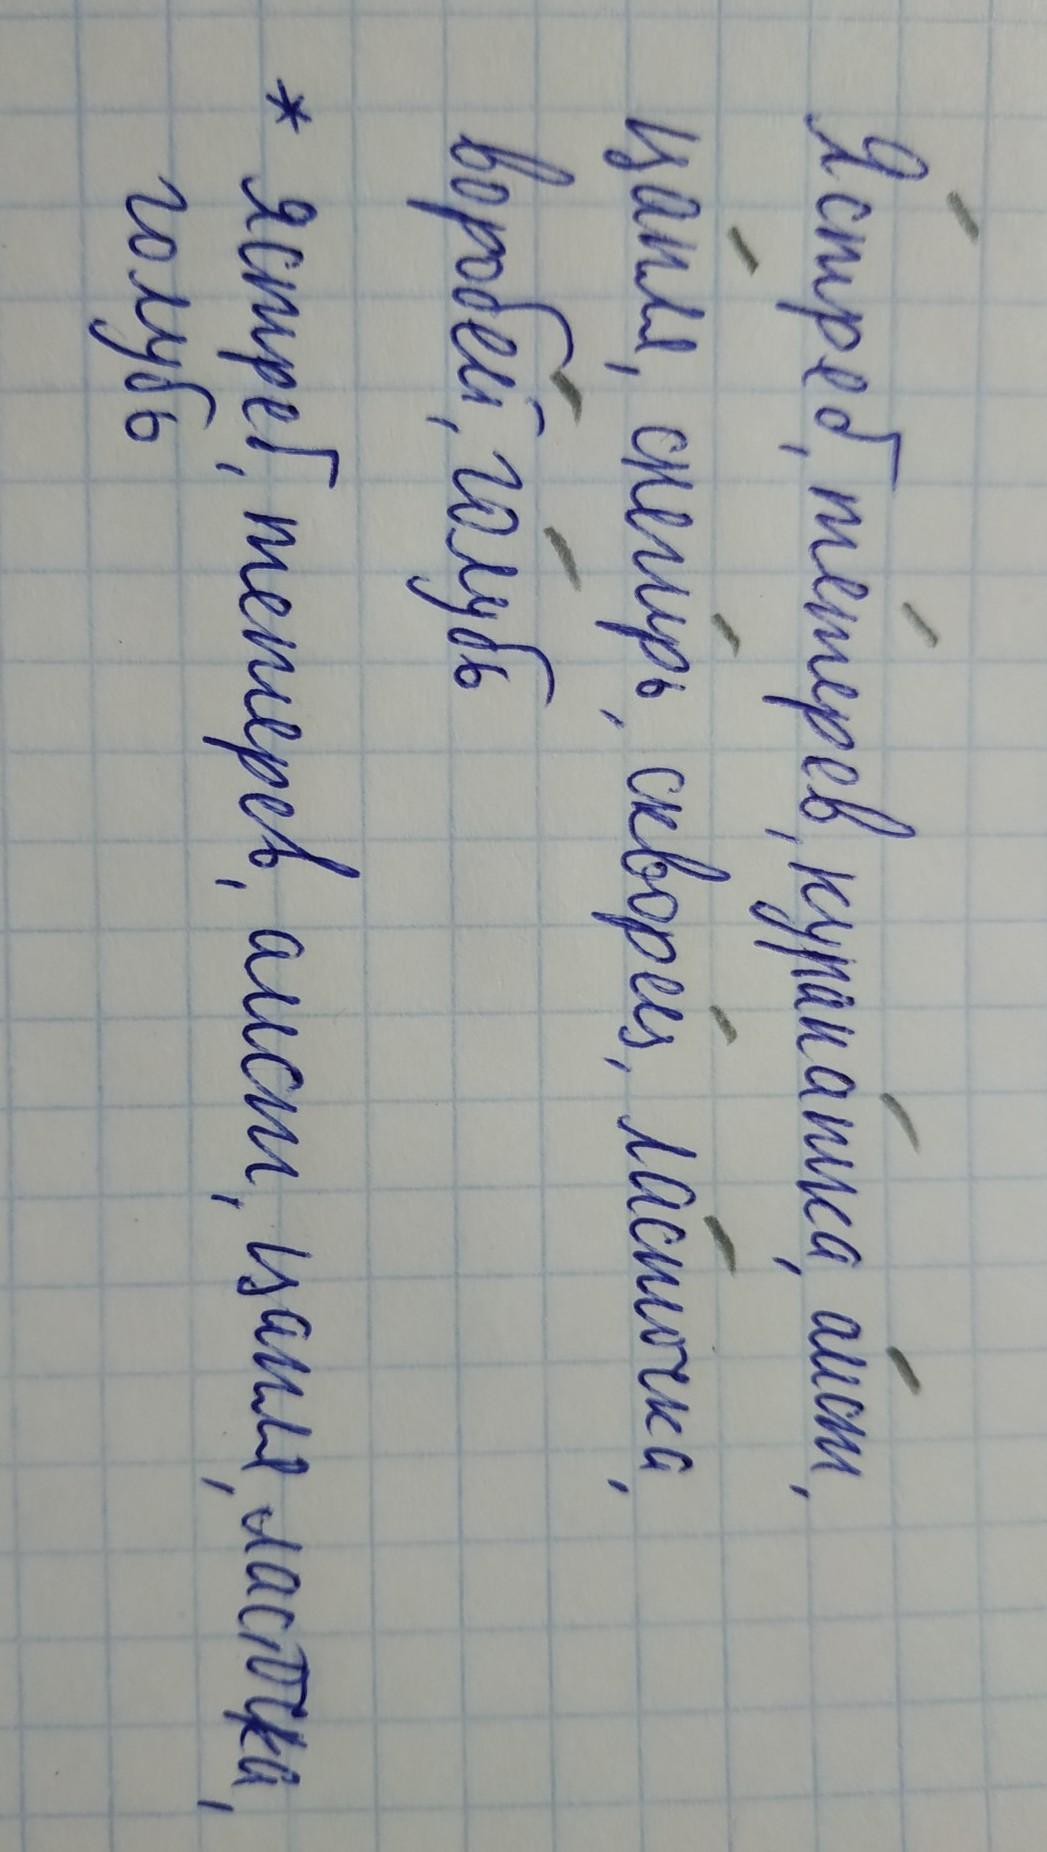 Я́стреб, те́терев, куропа́тка, а́ист,
ца́пля, снеги́рь, скворе́ц, ла́сточка,
воробе́й, го́лубь
* ястреб, тетерев, аист, цапля, ласточка,
голубь